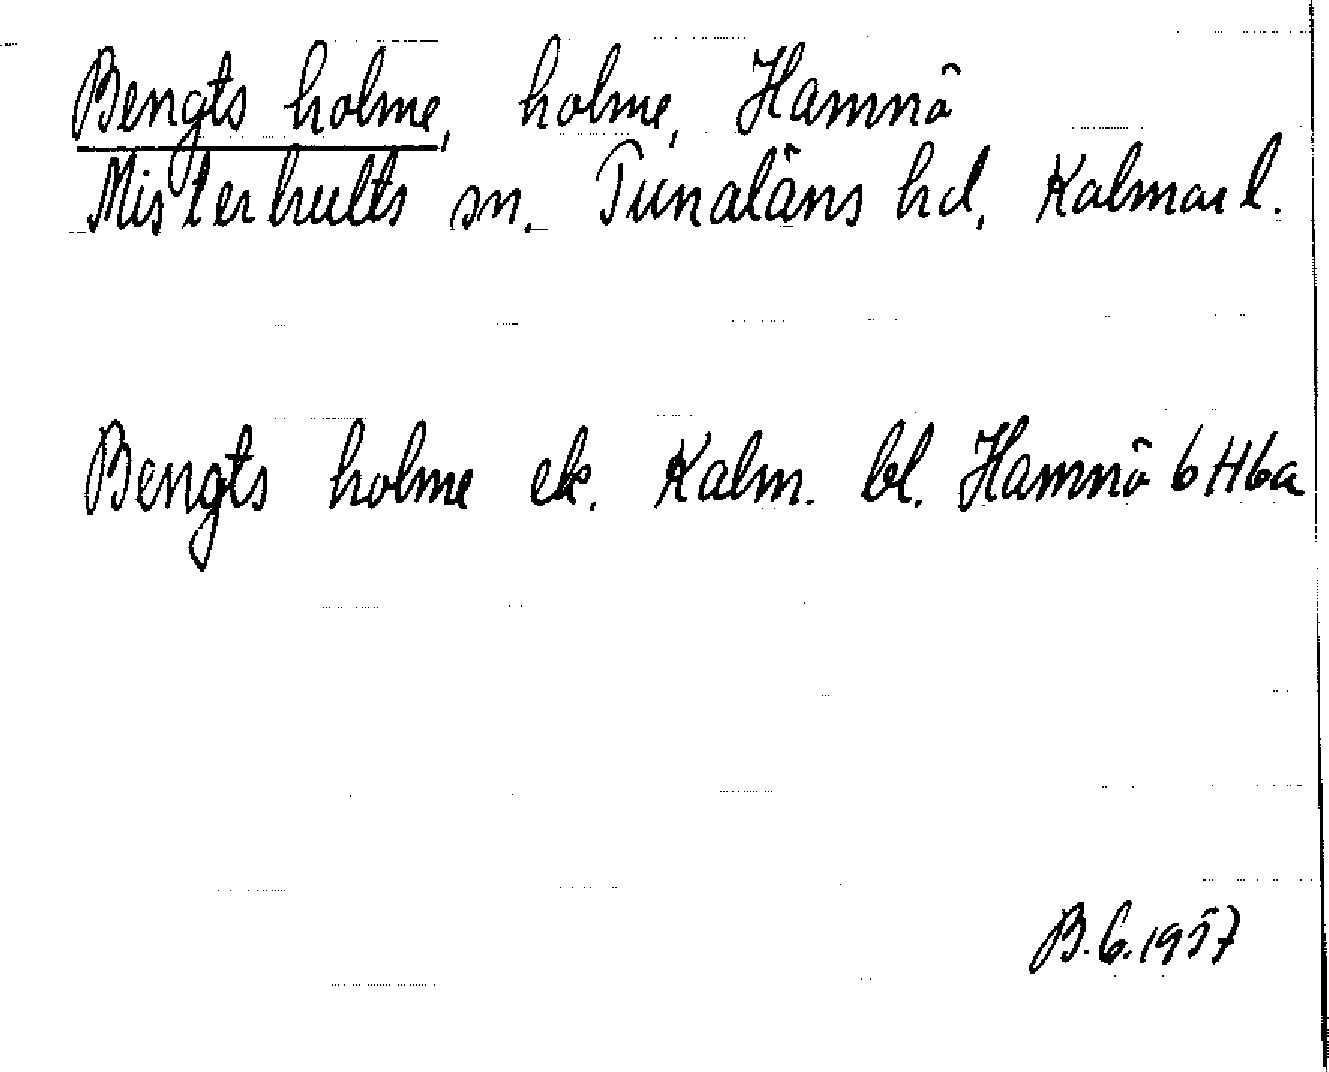 Bengts holme, holme, Hamnö
Misterhults sn. Tunaläns hd, Kalmar l.
Bengts holme ek. Kalm. bl. Hamnö 6H6a
B.G.1957